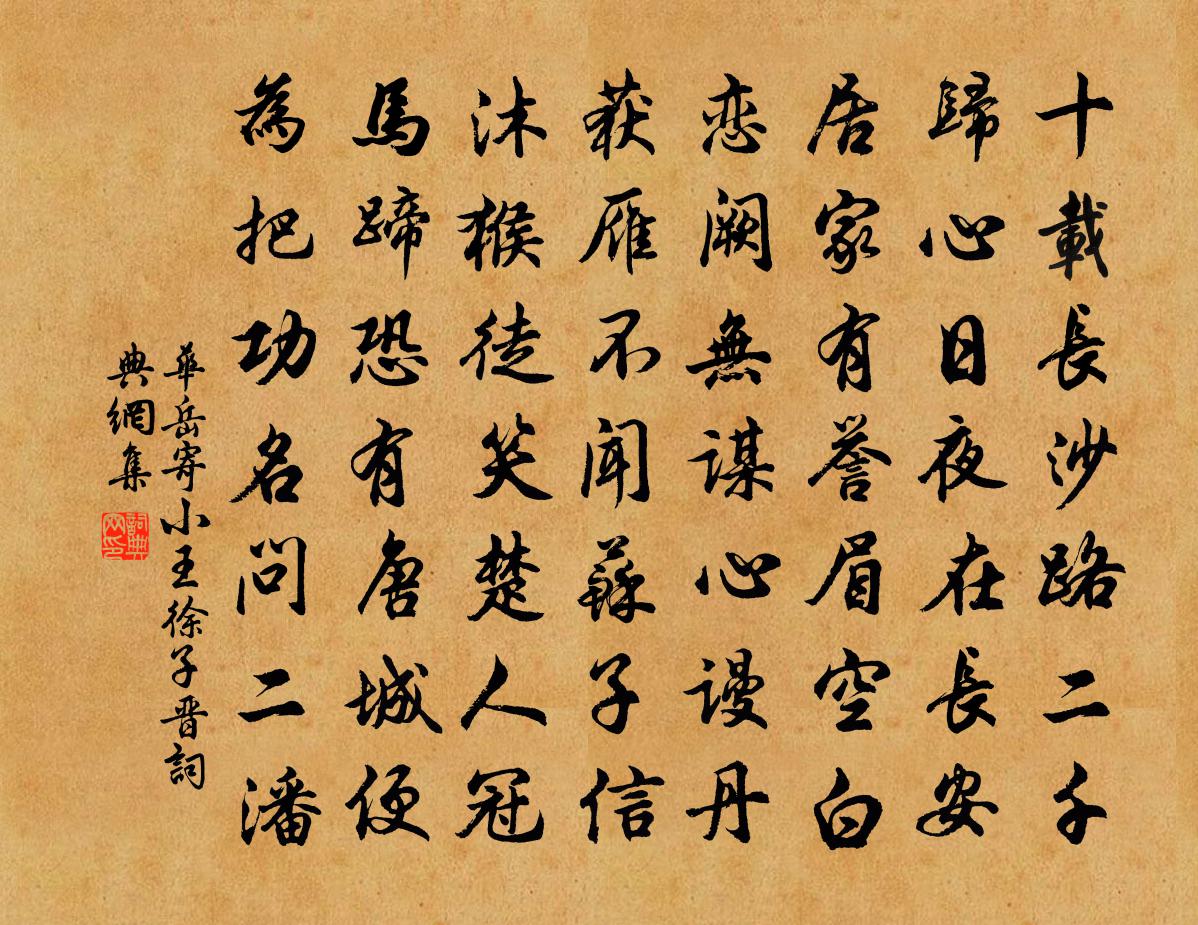 十載長沙路二千
歸心日夜在長安
居家有譽眉空白
恋闕無謀心謾丹
获雁不闻蘇子信
沐猴徒笑楚人冠
馬蹄恐有唐城便
為把功名问二潘
華岳寄小王徐子晋詞
典網集
詞典
网印